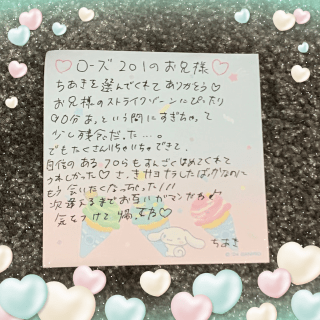 ♡ローズ201のお兄様♡
ちあきを選んでくれてありがとう♡
お兄様のストライクゾーンにぴったり
90分あっという間にすぎちゃって
少し残念だった…。
でもたくさんいちゃいちゃできて、
自信のある
うれしかった♡ さっきサヨナラしたばっかなのに
もう会いたくなっちゃった!!!
次逢えるまでお互いガマンだね
気をつけて帰ってね♡
ちあき